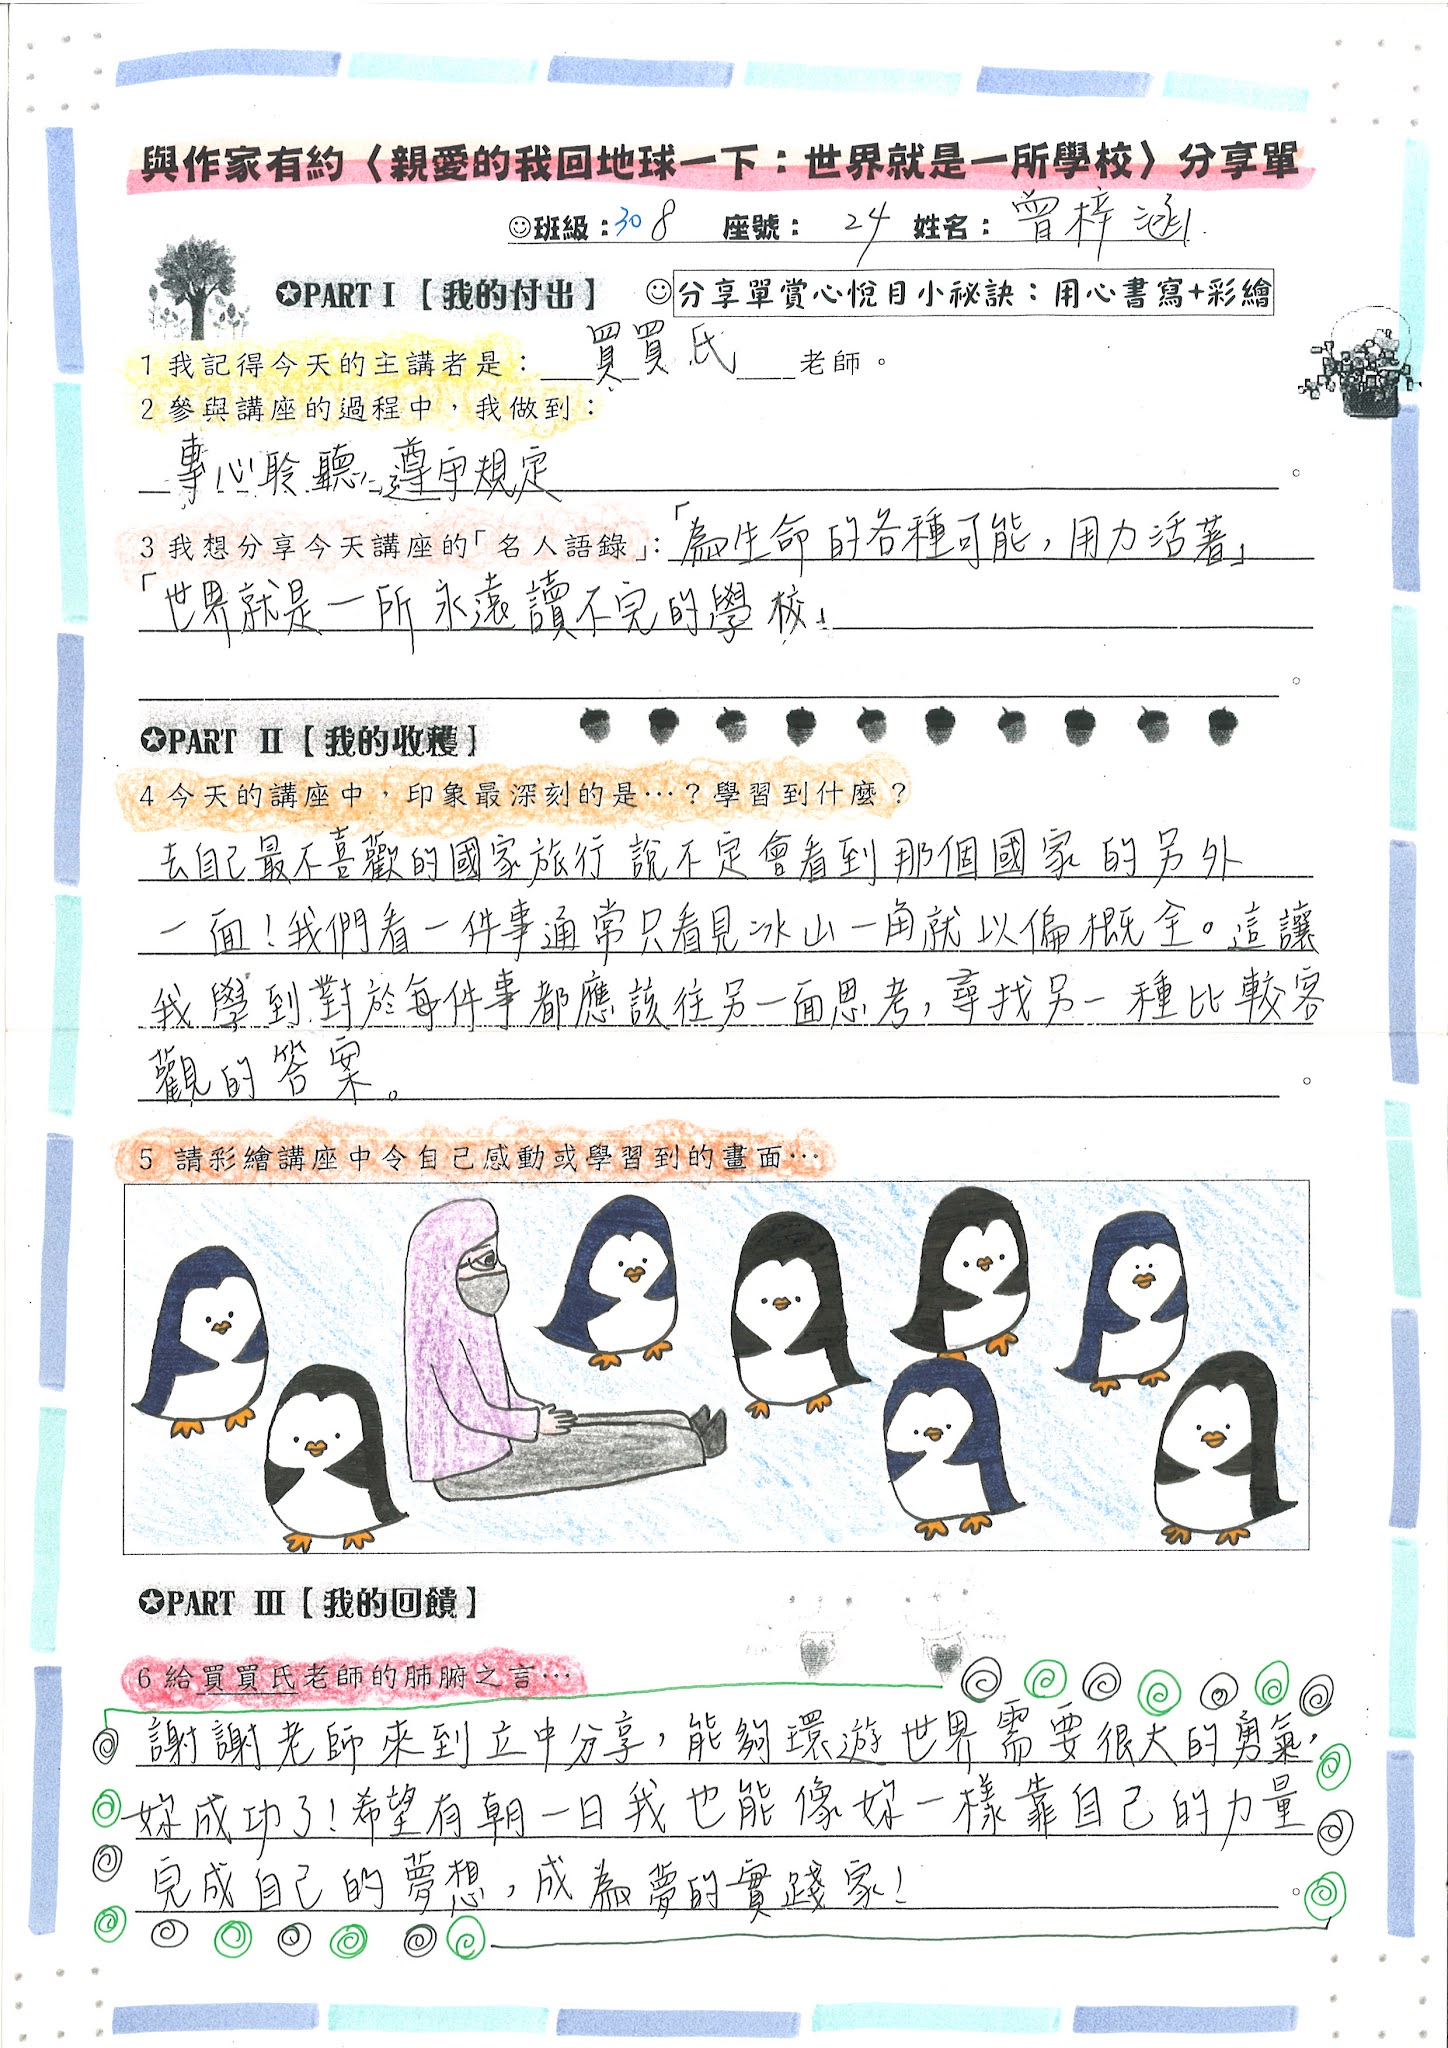 與作家有約〈親愛的我回地球一下：世界就是一所學校〉分享單
☺班級：308 座號： 24 姓名：曾梓涵
✪PART I【我的付出】 ☺分享單賞心悅目小祕訣：用心書寫+彩繪
1 我記得今天的主講者是：買買氏老師。
2 參與講座的過程中，我做到：
專心聆聽、遵守規定。
3 我想分享今天講座的「名人語錄」：「為生命的各種可能，用力活著」
「世界就是一所永遠讀不完的學校」
。
✪PART II【我的收穫】
4 今天的講座中，印象最深刻的是…？學習到什麼？
去自己最不喜歡的國家旅行說不定會看到那個國家的另外
一面！我們看一件事通常只看見冰山一角就以偏概全。這讓
我學到對於每件事都應該往另一面思考，尋找另一種比較客
觀的答案。。
5 請彩繪講座中令自己感動或學習到的畫面…
✪PART III【我的回饋】
6 給買買氏老師的肺腑之言…
謝謝老師來到立中分享，能夠環遊世界需要很大的勇氣，
妳成功了！希望有朝一日我也能像妳一樣靠自己的力量
完成自己的夢想，成為夢的實踐家！。